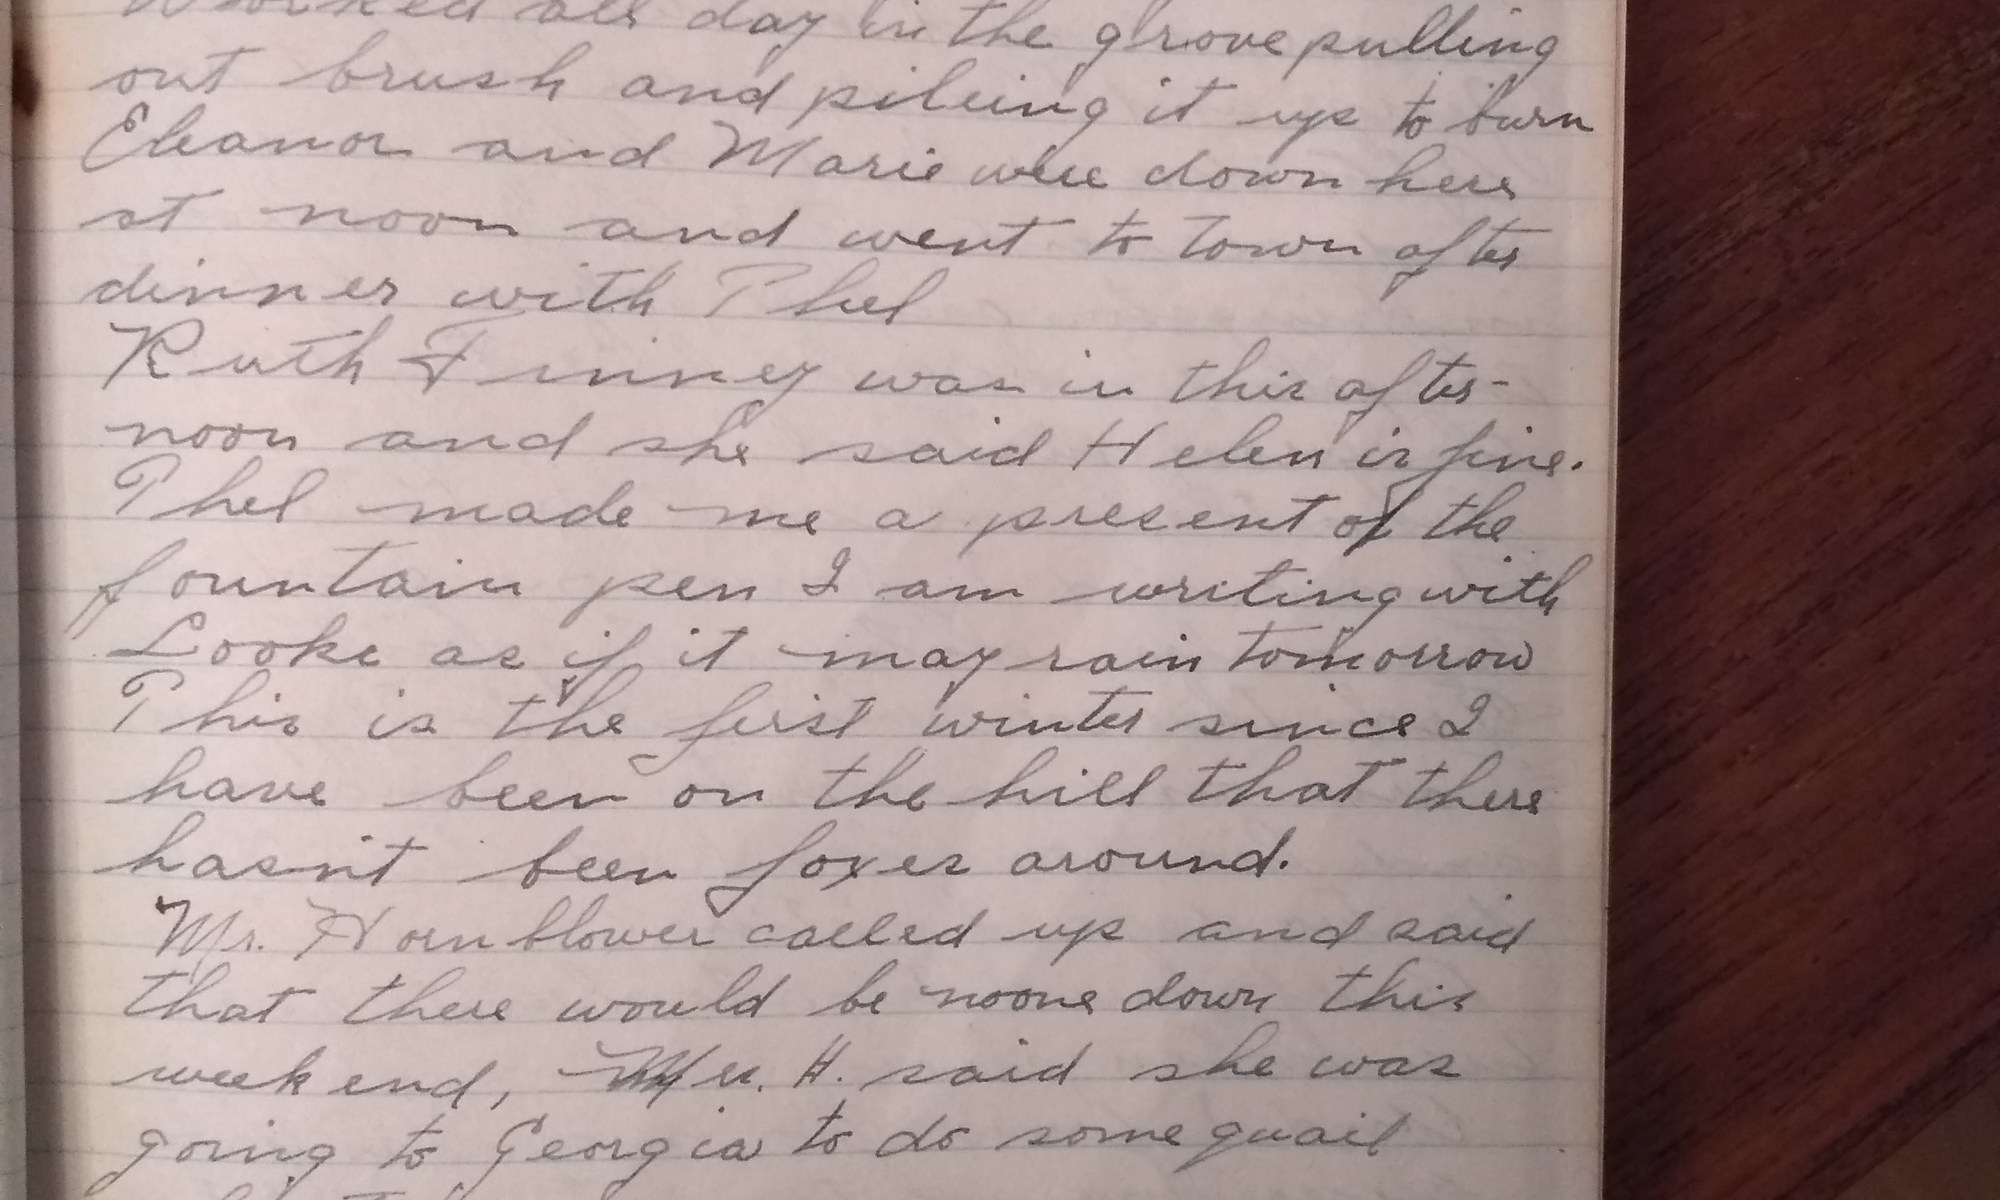 Worked all day in the grove pulling
out brush and pileing it up to burn
Eleanor and Marie were down here
at noon and went to town after
dinner with Thel
Ruth Finney was in this after-
noon and she said Helen is fine.
Thel made me a present of the
fountain pen I am writing with
Looks as if it may rain tomorrow
This is the first winter since I
have been on the hill that there
hasn't been foxes around.
Mr. Hornblower called up and said
that there would be noone down this
week end, Mrs. H. said she was
going to Georgia to do some quail